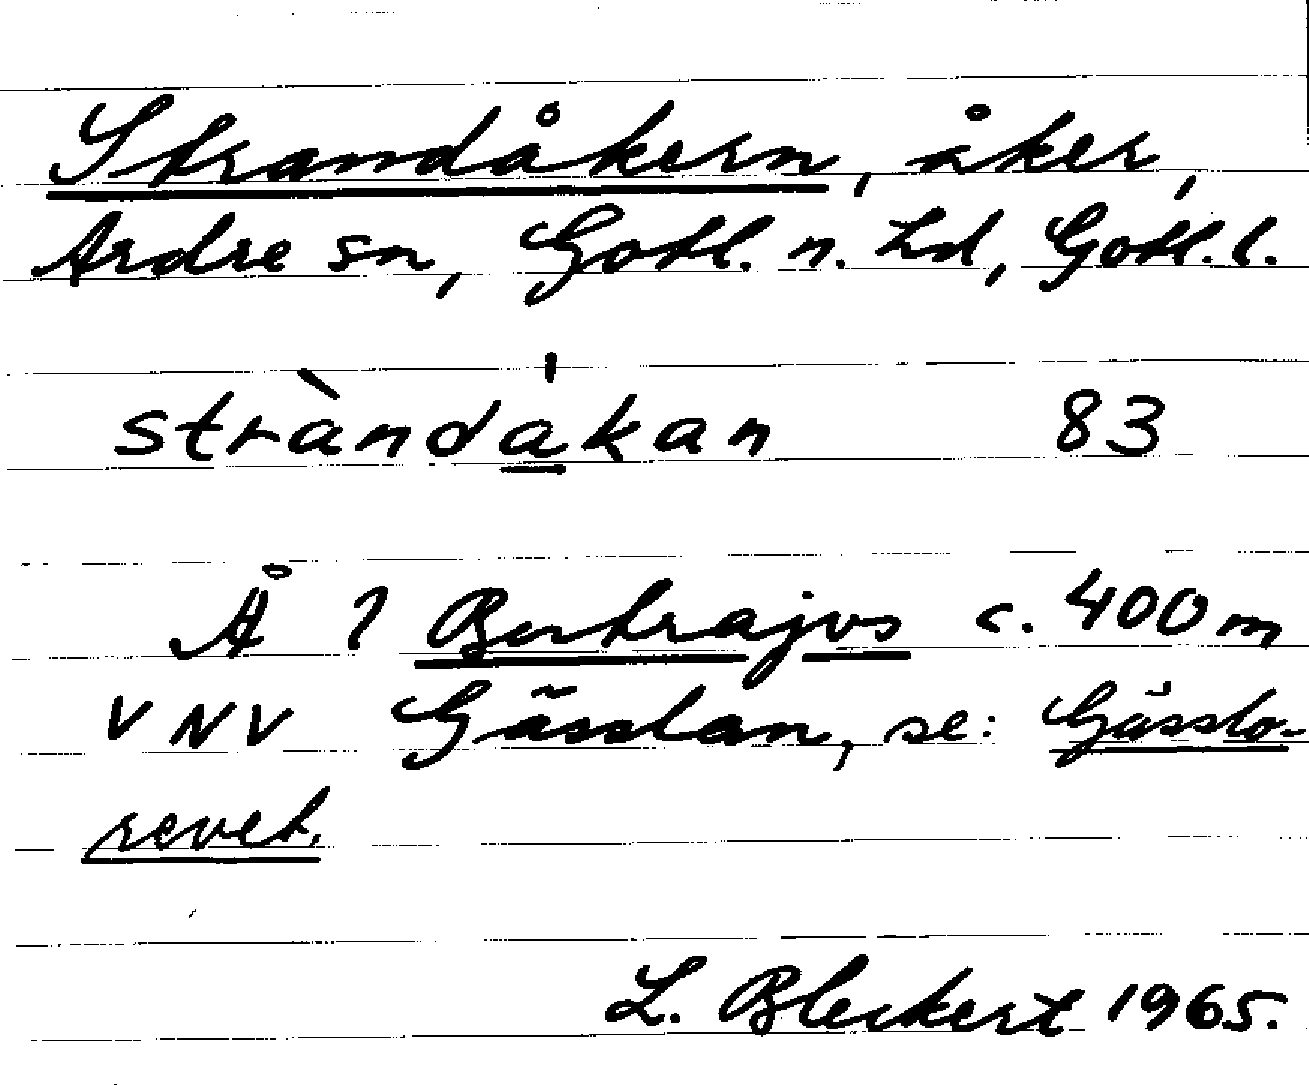 Strandåkern, åker,
Ardre sn, Gotl. n. hd, Gotl. l.
stràndákan 83
Å l Bertrajvs c. 400 m
VNV Gässlan, se: Gässlo-
revet.
L. Bleckert 1965.